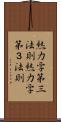 熱力学第三
法則熱力学
第３法則